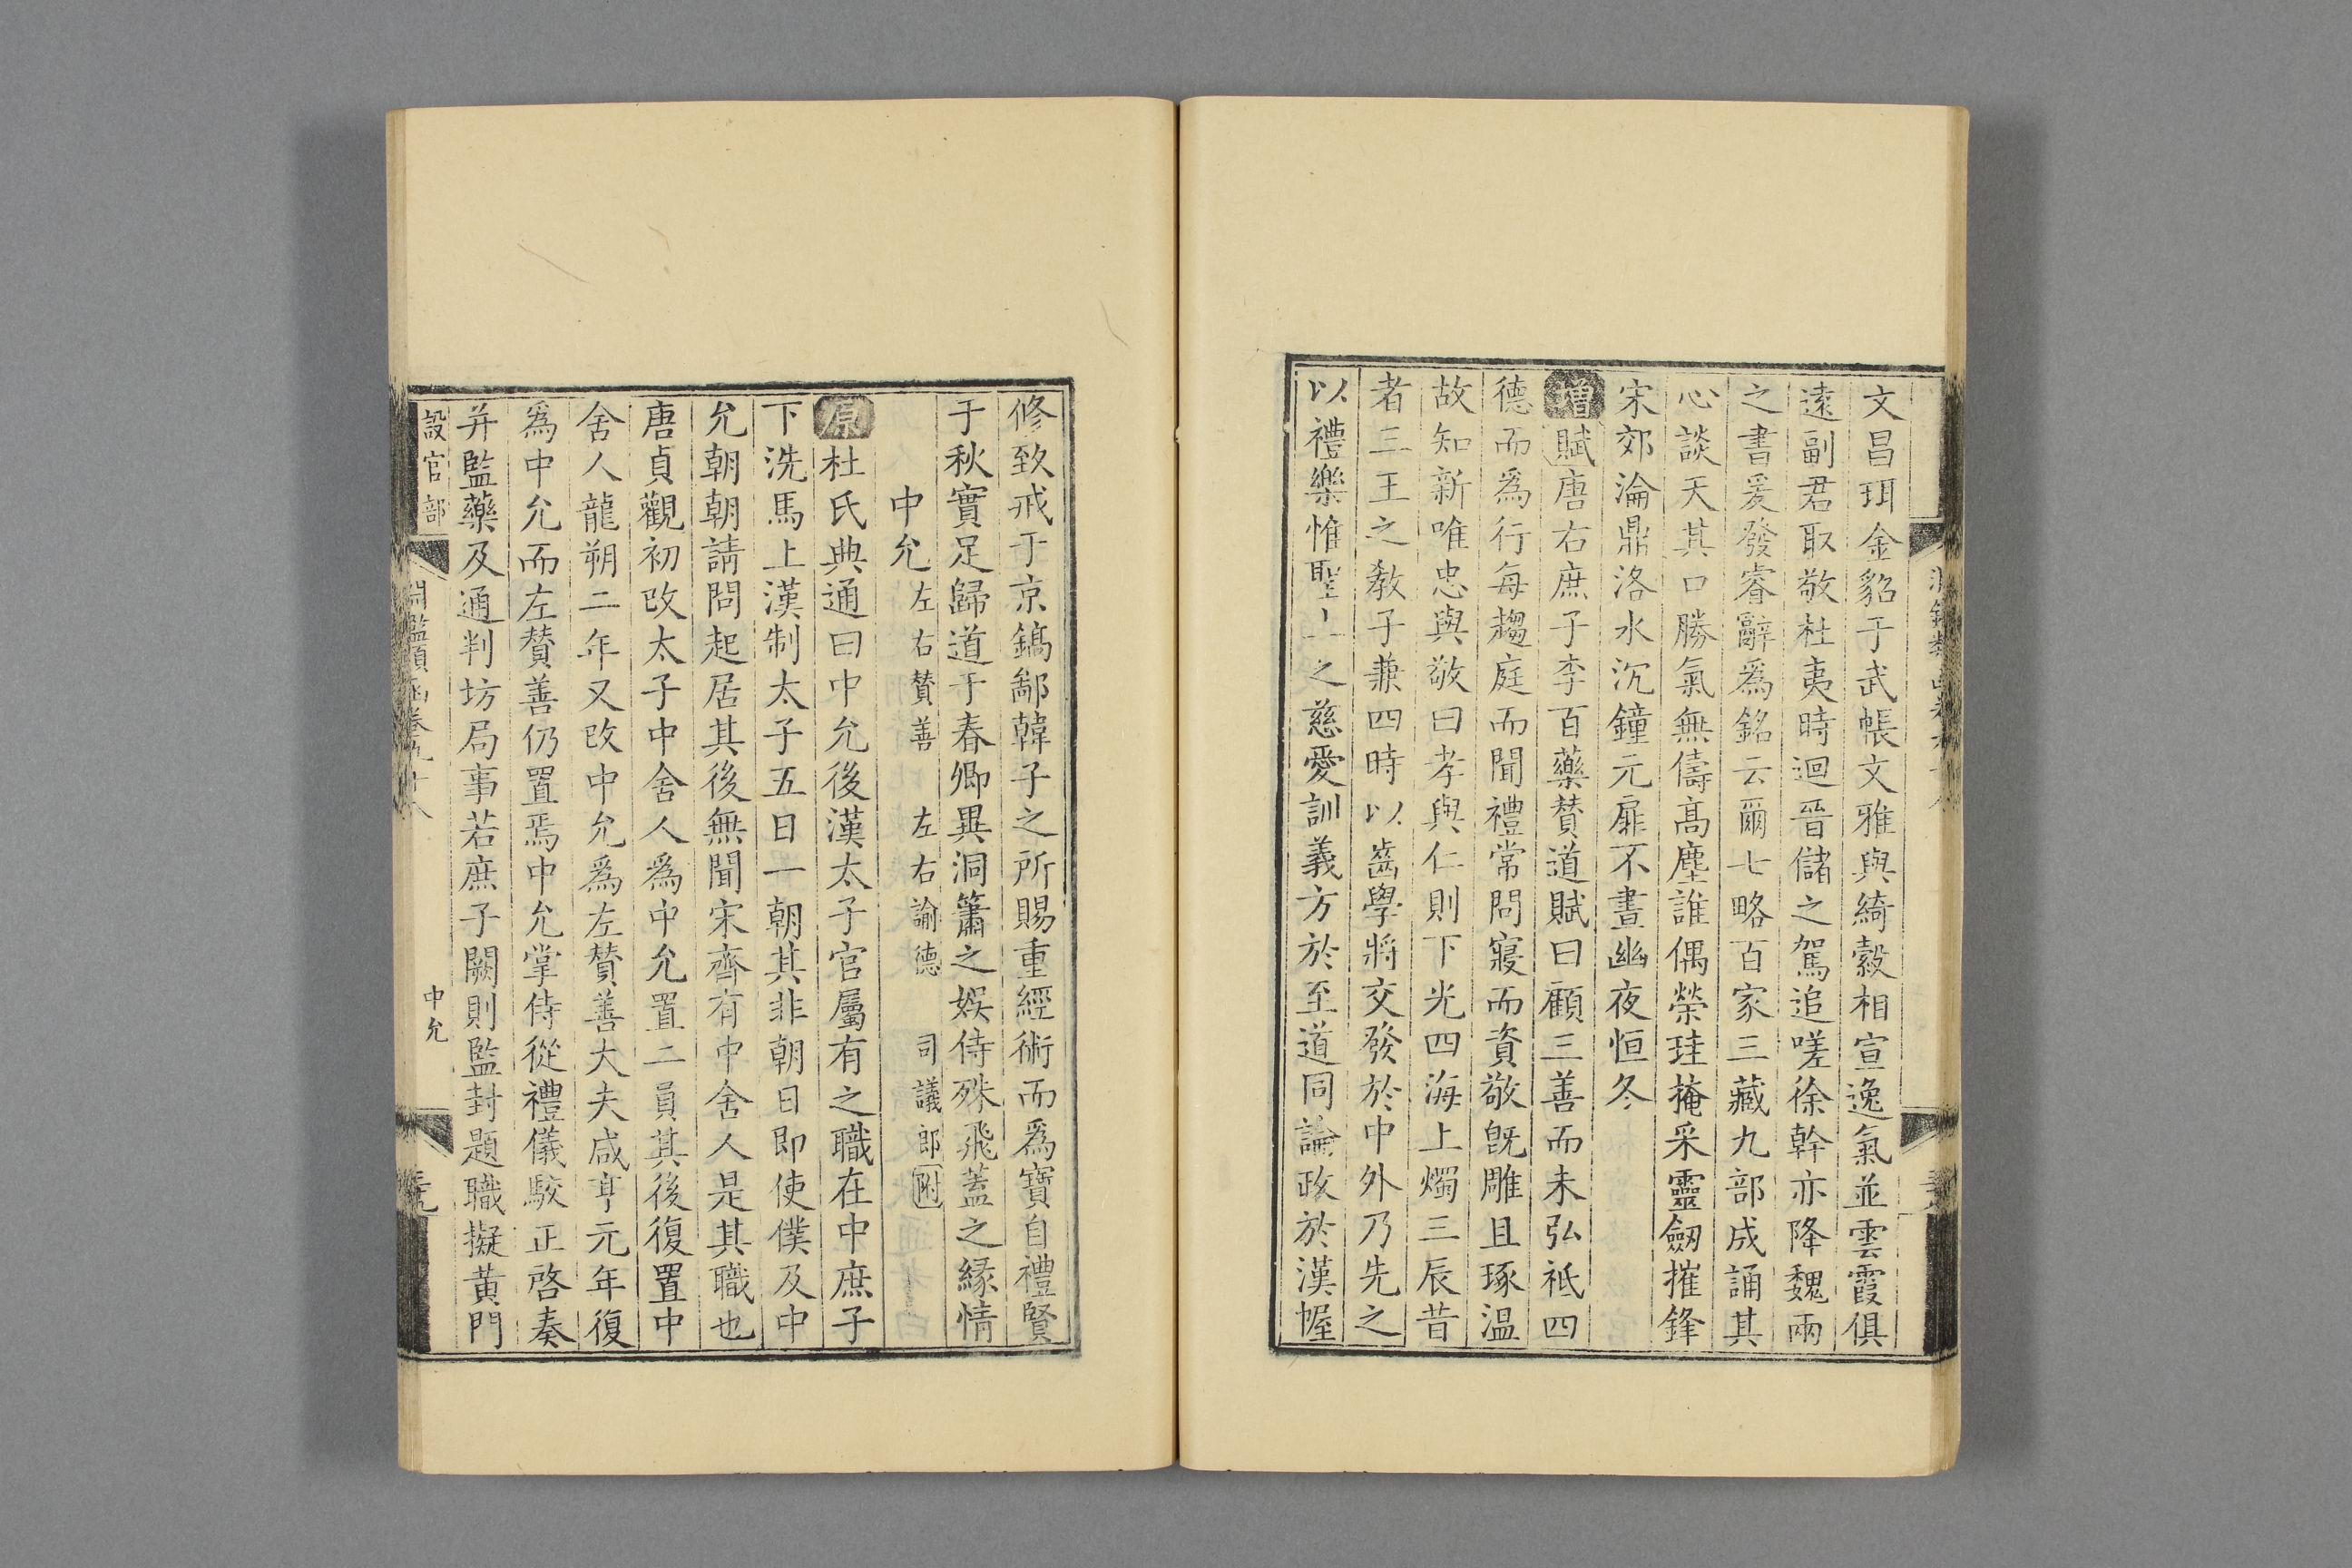 文昌珥金貂于武帳文雅與綺縠相宣逸氣並雲霞俱
遠副君取敬杜夷時迴晉儲之駕追嗟徐幹亦降魏兩
之書爰發睿辭爲銘云爾七略百家三藏九部成誦其
心談天其口勝氣無儔高塵誰偶榮珪掩采靈劒摧鋒
宋郊淪鼎洛水沉鐘元扉不晝幽夜恒冬
增賦唐右庶子李百藥贊道賦曰顧三善而未弘祇四
德而爲行每趨庭而聞禮常問寢而資敬旣雕且琢温
故知新唯忠與敬曰孝與仁則下光四海上燭三辰昔
者三王之敎子兼四時以齒學將交發於中外乃先之
以禮樂惟聖上之慈愛訓義方於至道同論政於漢幄
修致戒于京鎬鄙韓子之所賜重經術而爲寶自禮賢
于秋實足歸道于春卿異洞簫之娱侍殊飛蓋之緣情
中允左右贊善 左右諭德 司議郎附
原杜氏典通曰中允後漢太子官屬有之職在中庶子
下洗馬上漢制太子五日一朝其非朝日即使僕及中
允朝朝請問起居其後無聞宋齊有中舍人是其職也
唐貞觀初改太子中舍人爲中允置二員其後復置中
舍人龍朔二年又改中允爲左贊善大夫咸亨元年復
爲中允而左贊善仍置焉中允掌侍從禮儀駮正啓奏
并監藥及通判坊局事若庶子闕則監封題職擬黃門
設官部 淵鑑類函卷九十八 中允